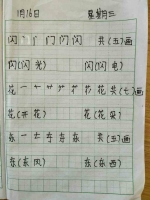 1月16日 星期三
闪 丶 丨 门 闪 闪 共(五)画
闪(闪光) 闪(闪电)
花 一 十 艹 艹 花 花 花 共(七)画
花(开花) 花(花朵)
东 一 七 东 东 东 共(五)画
东(东风) 东(东西)